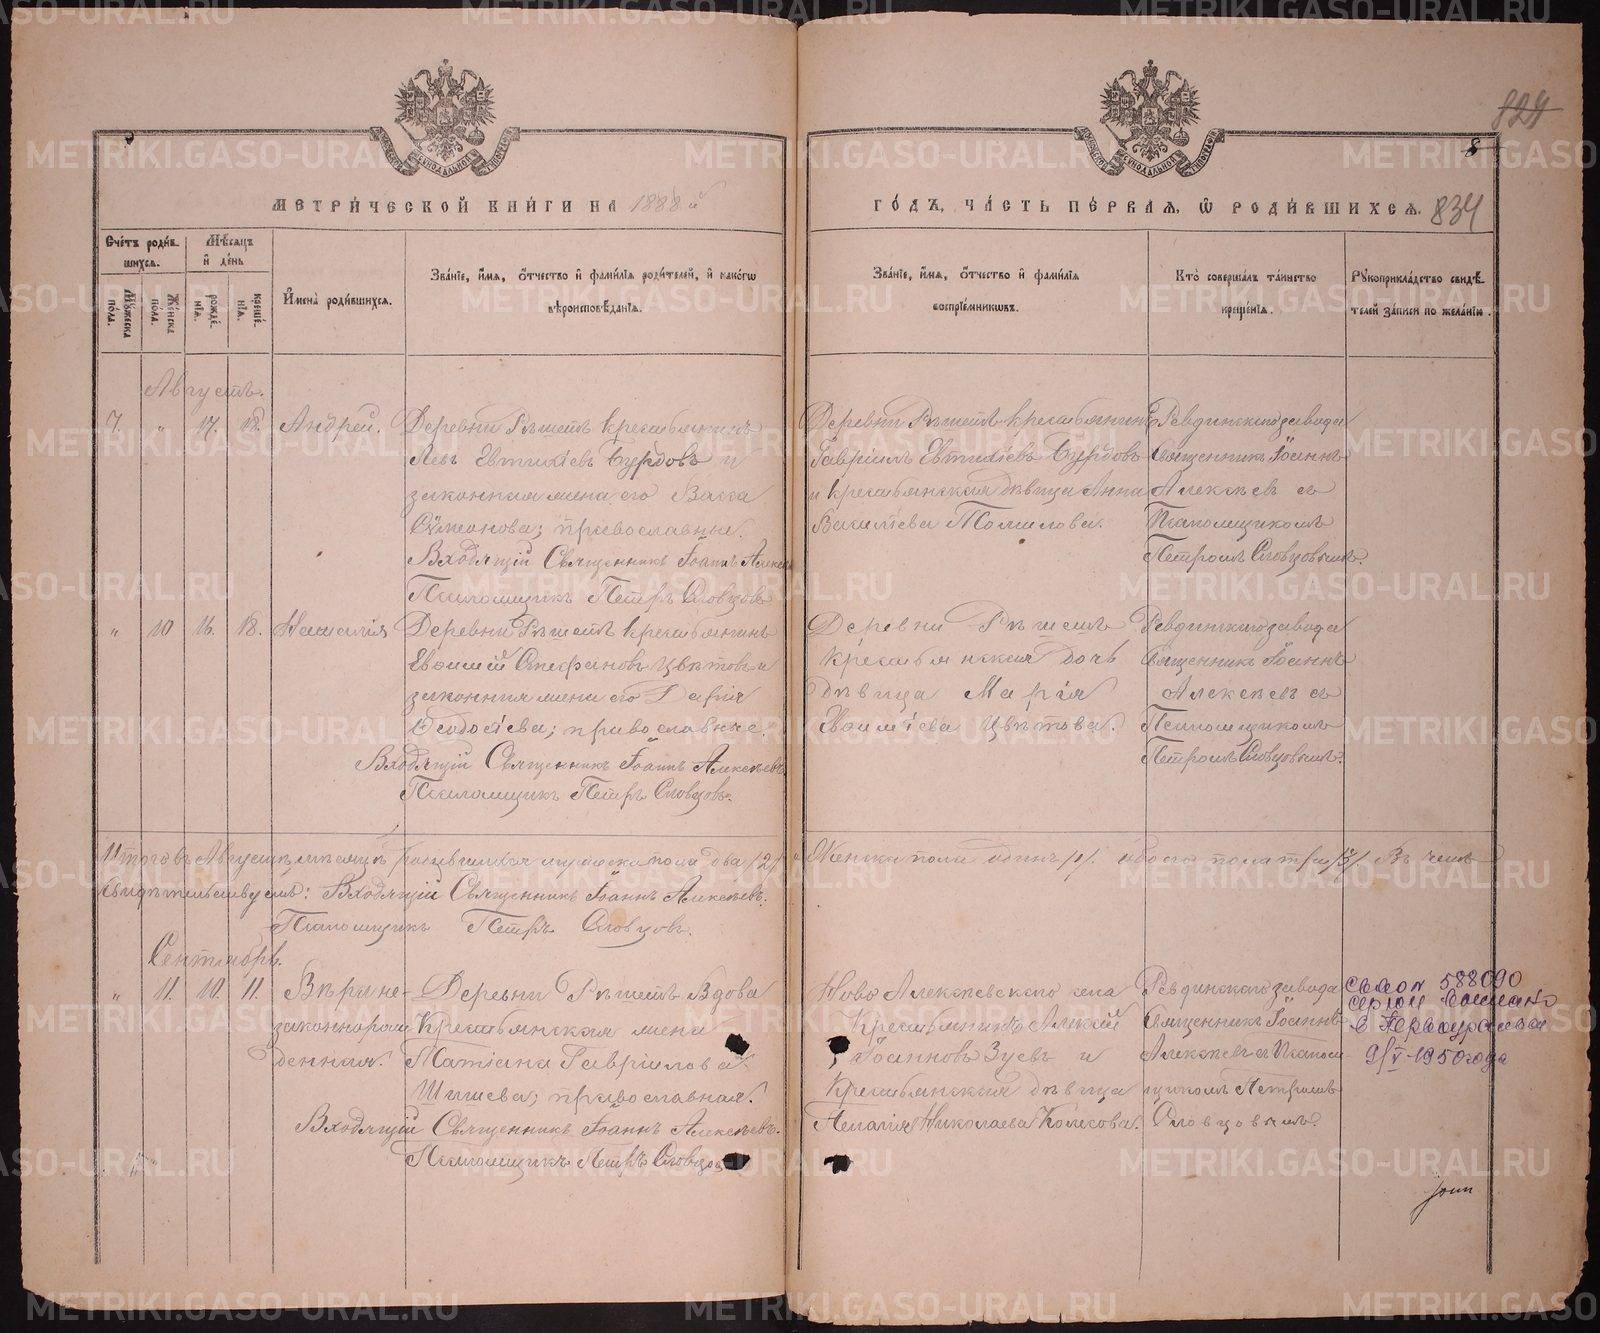 МЕТРИЧЕСКОЙ КНИГИ НА 1888й
ГОДЪ, ЧАСТЬ ПЕРВАЯ, Ѿ РОДИВШИХСЯ.
824
8
834
Счетъ родившихся.
Мужеска пола.
Женска пола.
Мѣсяцъ и день
рожденія.
крещенія.
Имена родившихся.
Званіе, имя, отчество и фамилія родителей, и какогѡ вѣроисповѣданія.
Званіе, имя, отчество и фамилія воспріемниковъ.
Кто совершалъ таинство крещенія.
Рукоприкладство свидѣтелей записи по желанію.
Августъ.
7. " 17. 18. Андрей.
Деревни Рѣшетъ крестьянинъ
Левъ Евтихіевъ Бурдовъ и
законная жена его Васса
Симеонова; православные.
Входящій Священникъ Іоаннъ Алексѣевъ
Псаломщикъ Петръ Словцовъ
Деревни Рѣшетъ крестьянинъ
Гавріилъ Евтихіевъ Бурдовъ
и крестьянская дѣвица Анна
Васильева Томилова.
Ревдинскаго завода
Священникъ Іоаннъ
Алексѣевъ съ
Псаломщикомъ
Петромъ Словцовымъ.
" 10 16. 18. Наталія
Деревни Рѣшетъ крестьянинъ
Евѳимій Стефановъ Цвѣтовъ и
законная жена его Дарія
Ѳеодосіева; православные.
Входящій Священникъ Іоаннъ Алексѣевъ
Псаломщикъ Петръ Словцовъ.
Деревни Рѣшетъ
крестьянская дочь
дѣвица Марія
Евѳиміева Цвѣтова.
Ревдинскаго завода
Священникъ Іоаннъ
Алексѣевъ съ
Псаломщикомъ
Петромъ Словцовымъ.
Итого въ Августѣ мѣсяцѣ родившихся мужеска пола два /2/. Женска пола одинъ /1/. обоего пола три /3/. Въ чемъ
свидѣтельствуемъ: Входящій Священникъ Іоаннъ Алексѣевъ.
Псаломщикъ Петръ Словцовъ.
Сентябрь.
" 11. 10. 11. Вѣра не-
законнорож
денная.
Деревни Рѣшетъ вдова
Крестьянская жена
Татіана Гавріилова
Шишева; православная.
Входящій Священникъ Іоаннъ Алексѣевъ.
Псаломщикъ Петръ Словцовъ
Ново Алексѣевскаго села
Крестьянинъ Алексѣй
Іоанновъ Зуевъ и
Крестьянская дѣвица
Николаева
Ревдинскаго завода
Священникъ Іоаннъ
Алексѣевъ съ Псалом-
щикомъ Петромъ
Словцовымъ.
588090
в Первоуральске
9/V-1950 года
METRIKI.GASO-URAL.RU